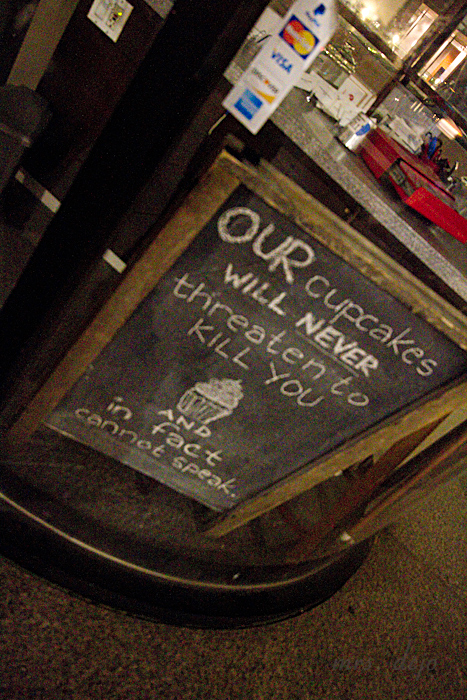 PayPal
MasterCard
VISA
DISCOVER
OUR cupcakes
WILL NEVER
threaten to
KILL YOU
AND
in fact
cannot speak.